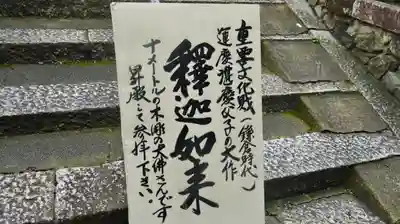 重要文化財(鎌倉時代)
運慶湛慶父子の大作
釋迦如来
十メートルの木彫の大佛さんです
昇殿して参拝下さい